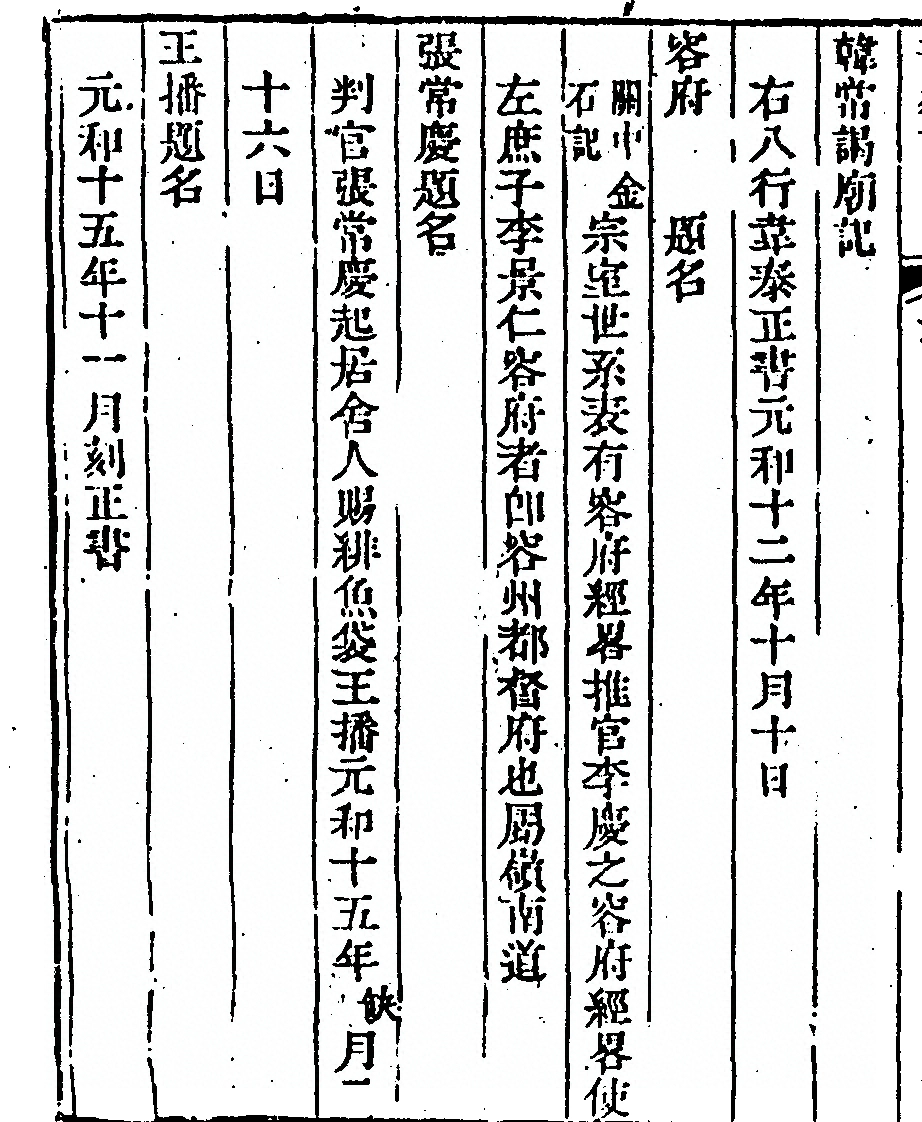 韓常謁廟記
右八行韋泰正書元和十二年十月十日
容府　題名
關中金石記
宗室世系表有容府經畧推官李慶之容府經畧使
左庶子李景仁容府者卽容州都督府也屬嶺南道
張常慶題名
判官張常慶起居舍人賜緋魚袋王播元和十五年缺月二
十六日
王播題名
元和十五年十一月刻正書